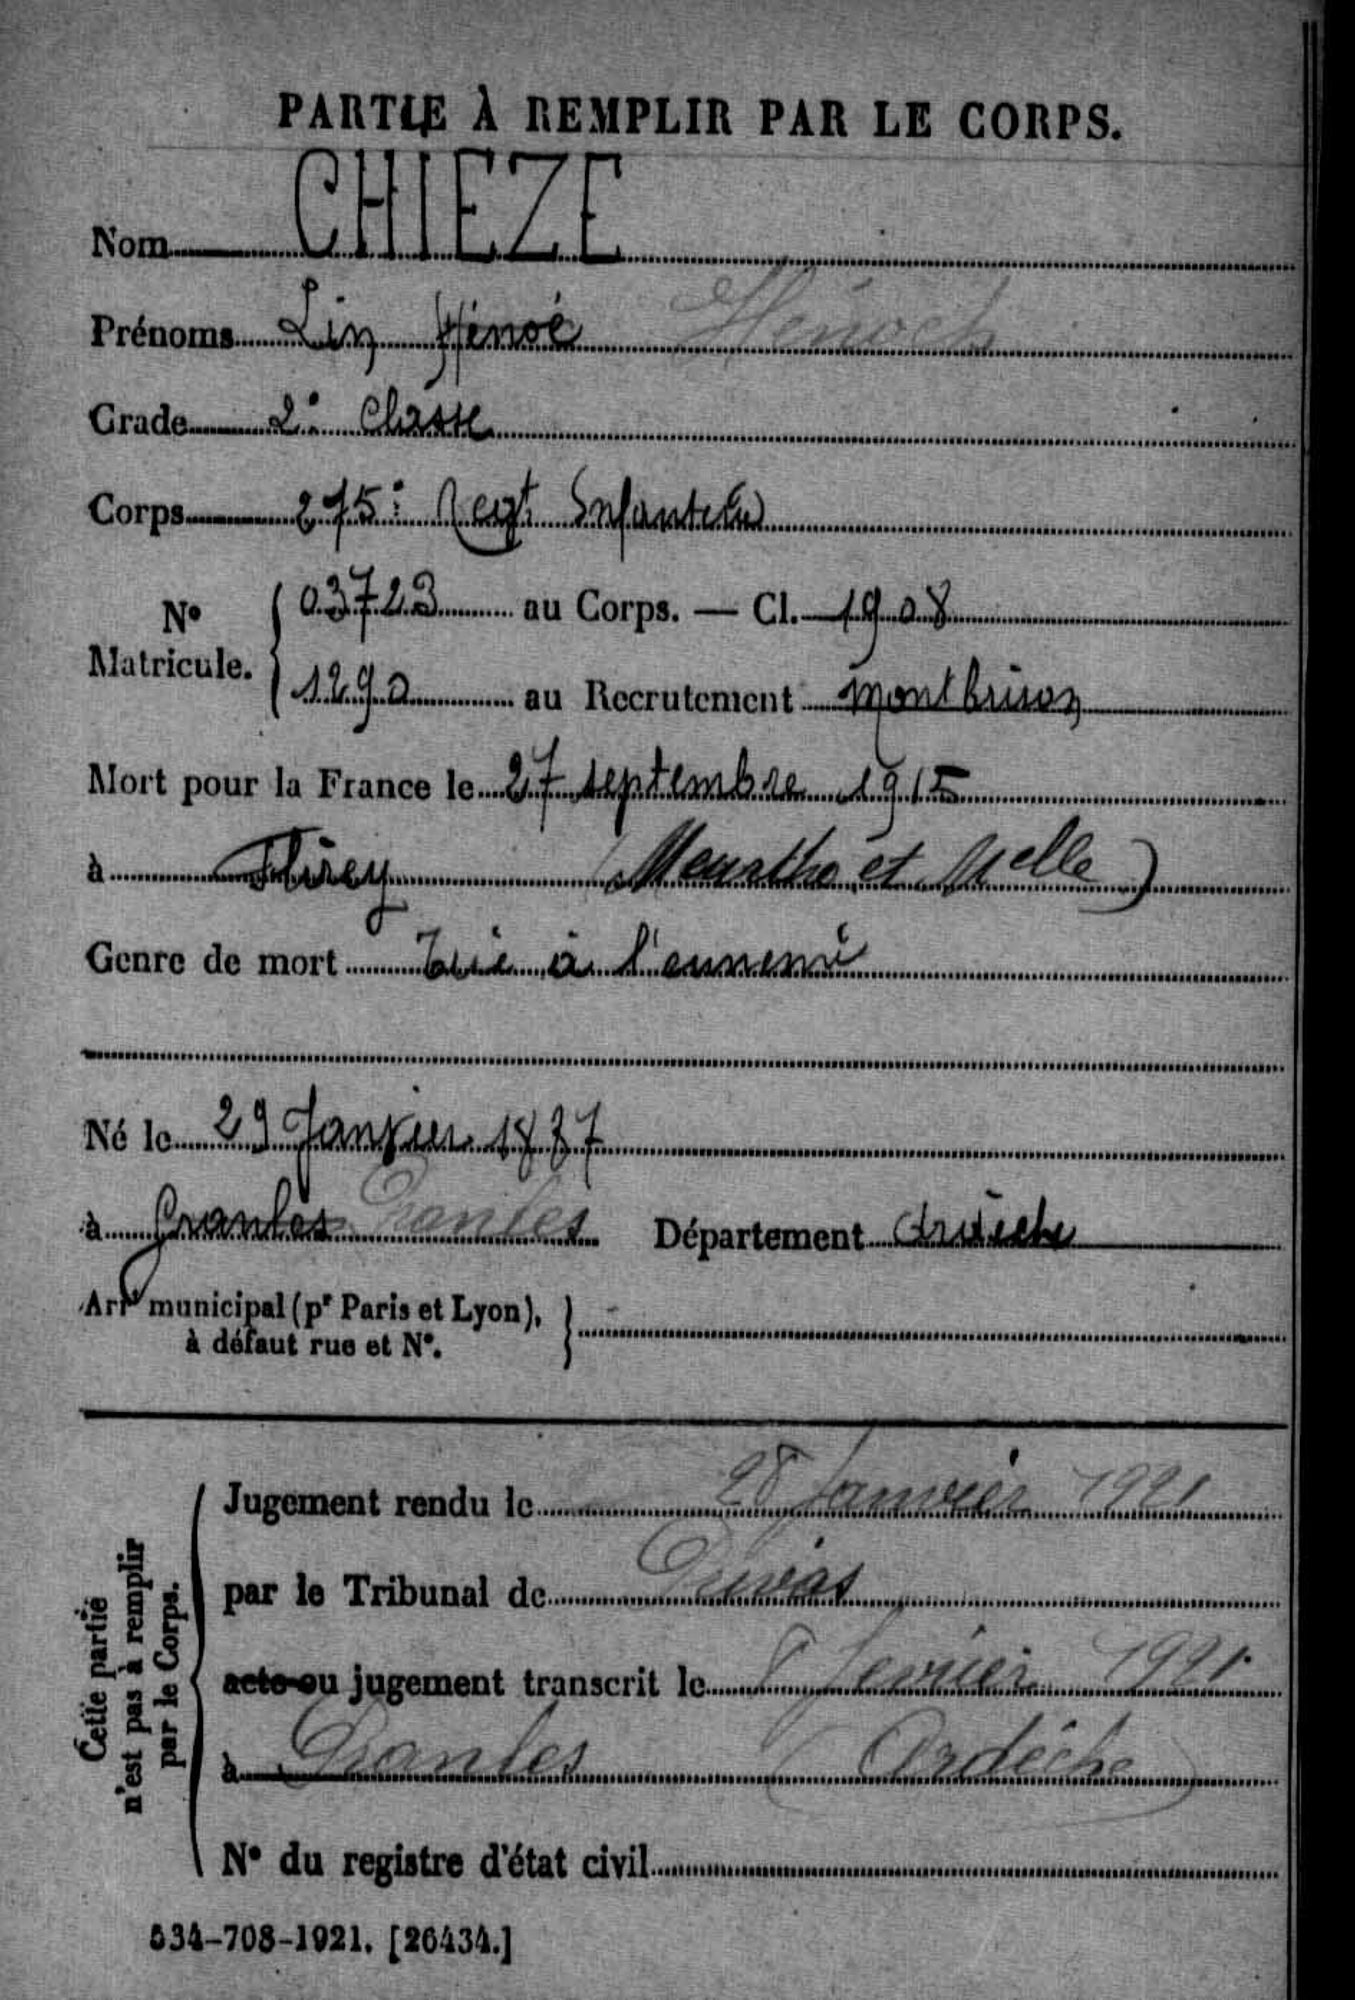 PARTIE À REMPLIR PAR LE CORPS.
Nom CHIEZE
Prénoms Lin Hénoé Hénoch
Grade 2e Classe
Corps 275e Regt Infanterie
No Matricule. 03723 au Corps. — Cl. 1908
1290 au Recrutement Montbrison
Mort pour la France le 27 septembre 1915
à Flirey (Meurthe et Melle)
Genre de mort Tué à l'ennemi
Né le 29 Janvier 1887
à Granles Pranles Département Ardèche
Arrt municipal (pr Paris et Lyon), à défaut rue et No.
Cette partie n'est pas à remplir par le Corps.
Jugement rendu le 28 Janvier 1921
par le Tribunal de Privas
acte ou jugement transcrit le 8 fevrier 1921
à Pranles (Ardèche)
No du registre d'état civil
534-708-1921. [26434.]